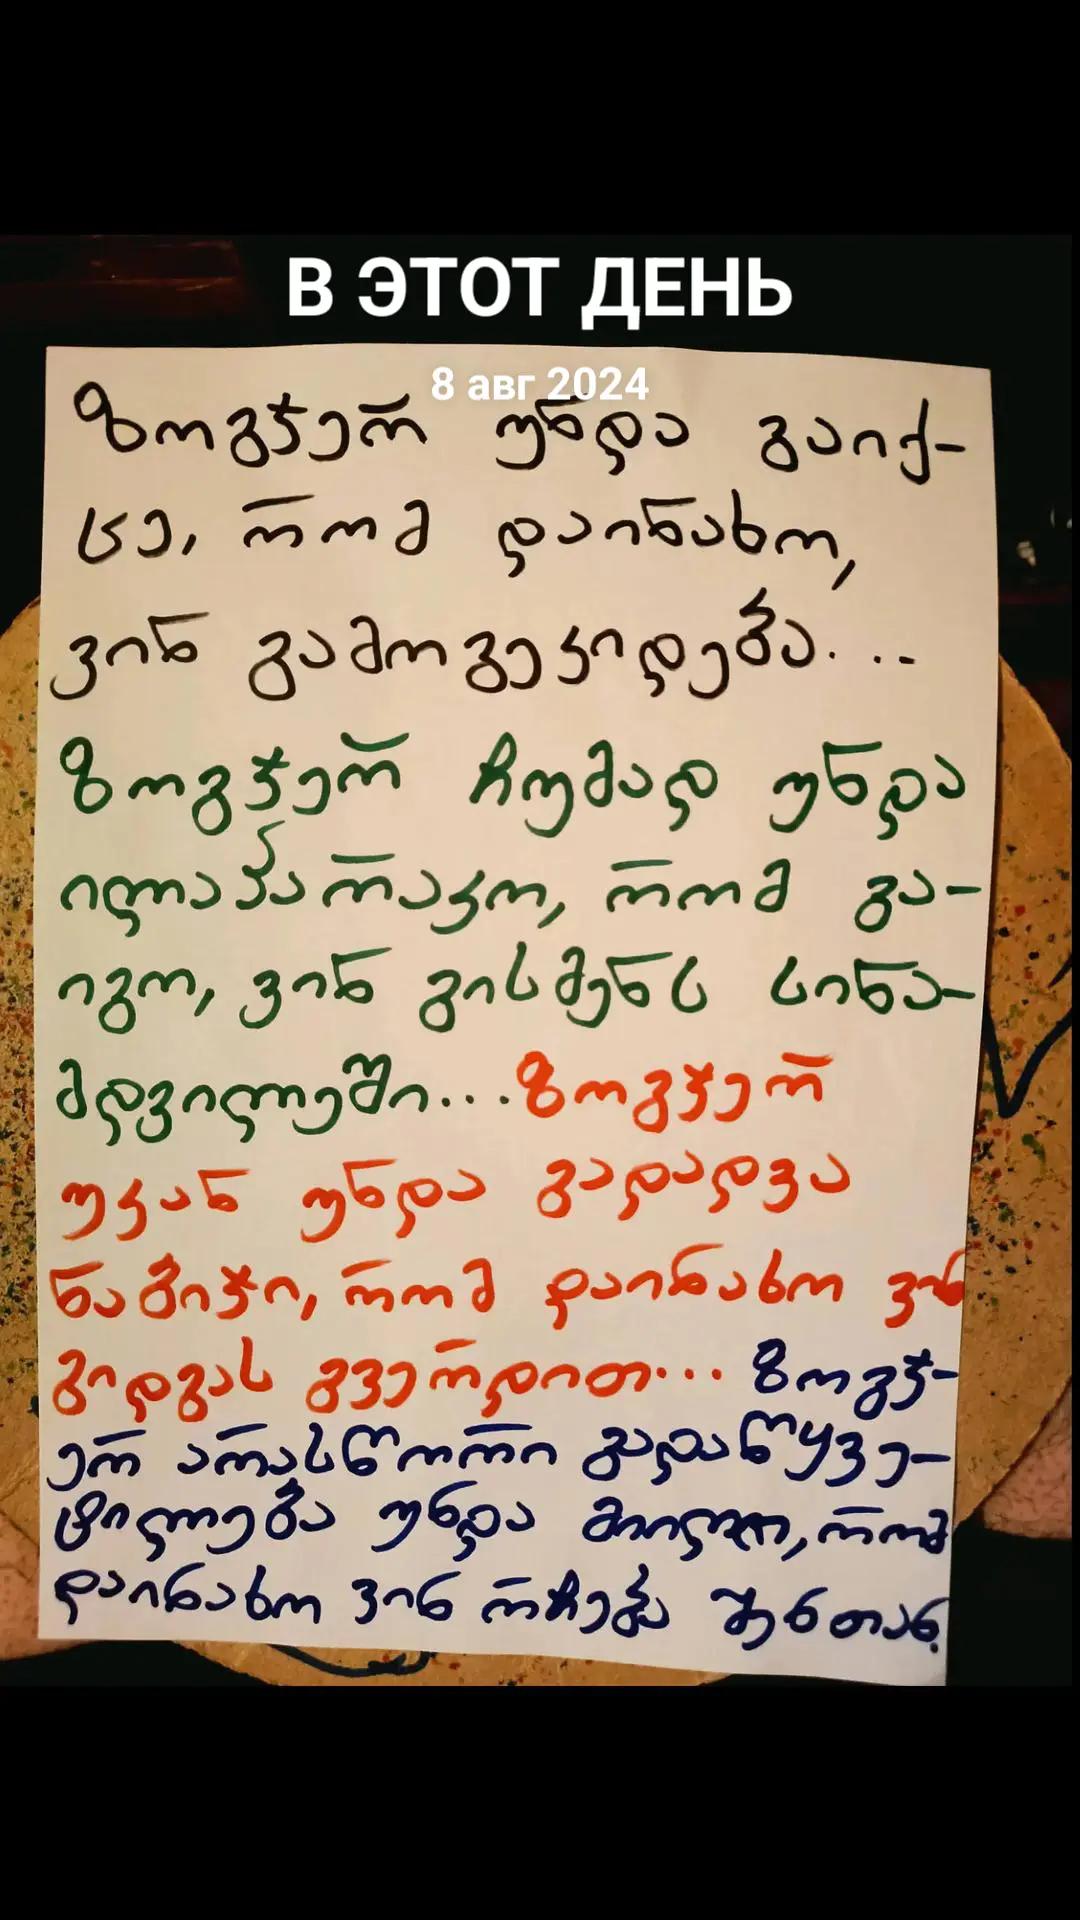 В ЭТОТ ДЕНЬ
8 авг 2024
ზოგჯერ უნდა გაიქ-
ცე, რომ დაინახო,
ვინ გამოგეკიდება...
ზოგჯერ ჩუმად უნდა
ილაპარაკო, რომ გა-
იგო, ვინ გისმენს სინა-
მდვილეში...ზოგჯერ
უკან უნდა გადადგა
ნაბიჯი, რომ დაინახო ვინ
გიდგას გვერდით... ზოგჯ-
ერ არასწორი გადაწყვე-
ტილება უნდა მიიღო, რომ
დაინახო ვინ რჩება შენთან.